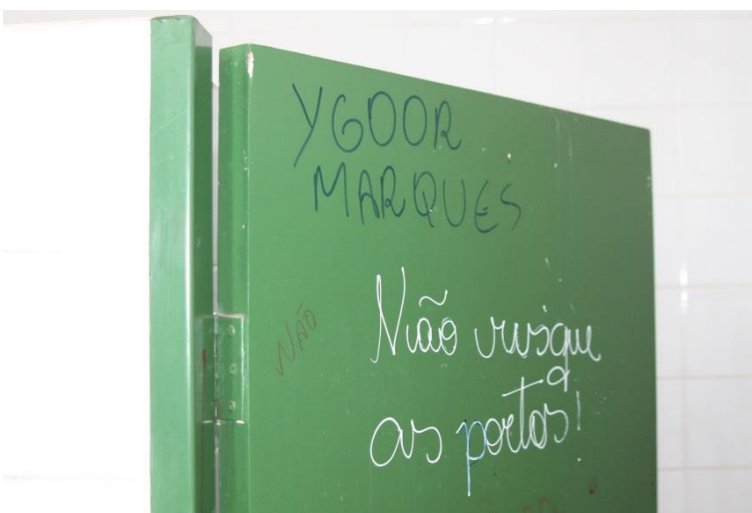 YGOOR
MARQUES
NÃO
Não risque
as portas!